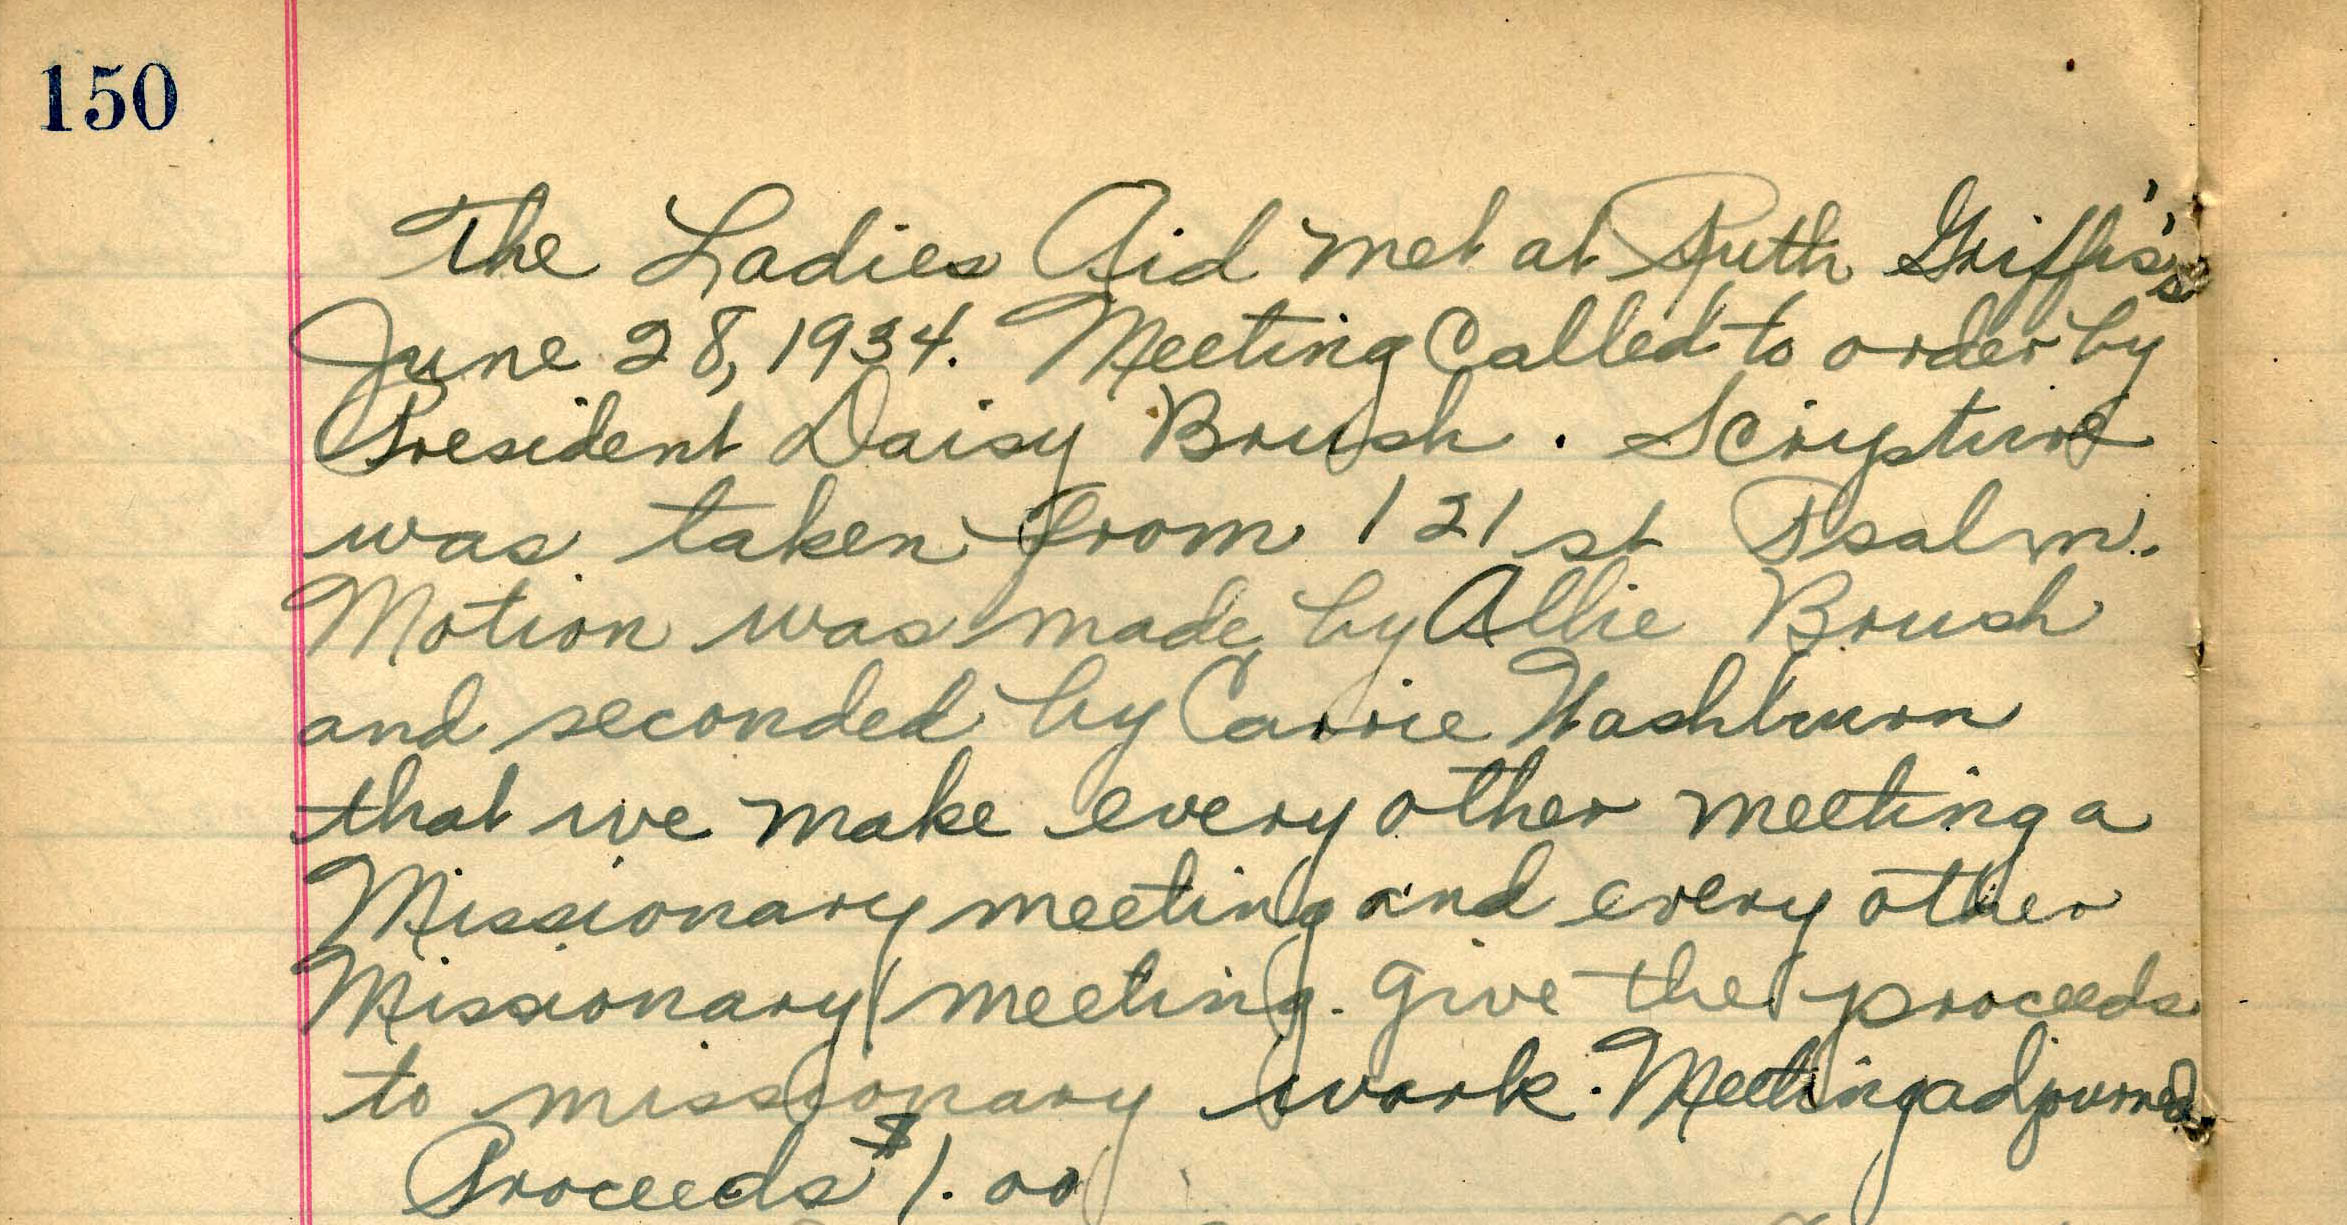 150
The Ladies Aid met at Ruth Griffis's
June 28, 1934. Meeting Called to order by
President Daisy Brush. Scripture
was taken from 121 st Psalm.
Motion was made by Allie Brush
and seconded by Carrie Washburn
that we make every other meeting a
Missionary meeting and every other
Missionary meeting. give the proceeds
to missionary work. Meeting adjourned.
Proceeds $1.00